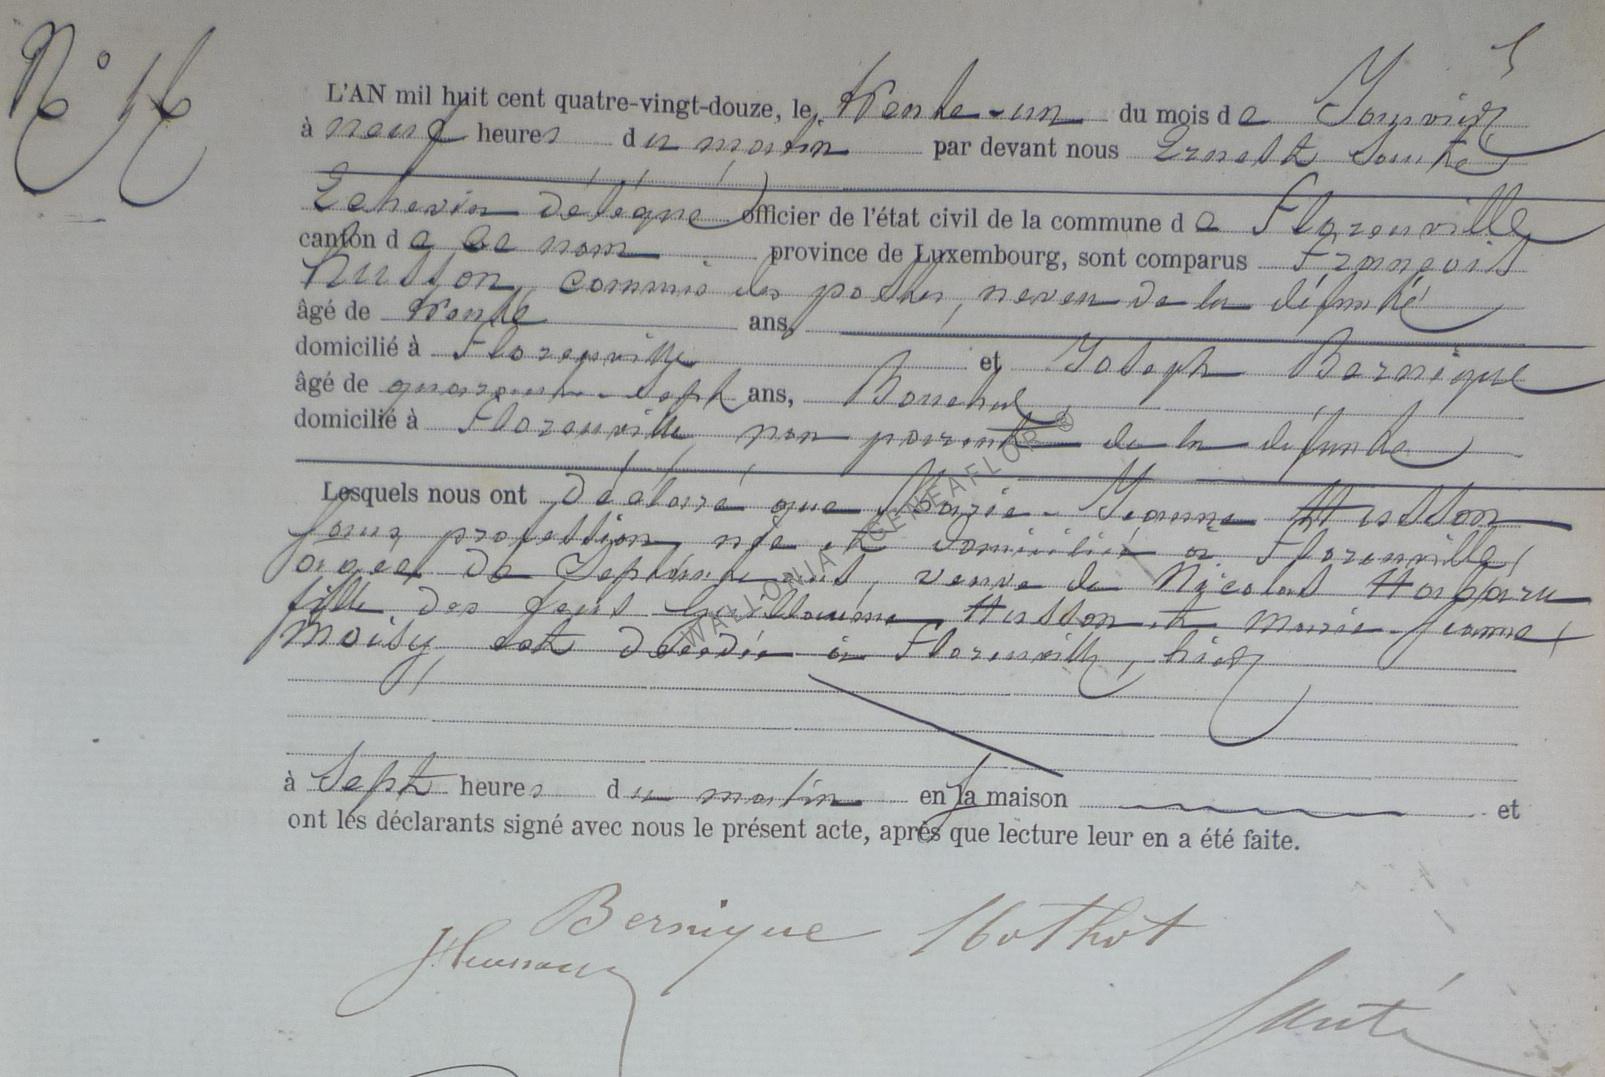 N° 16
L'AN mil huit cent quatre-vingt-douze, le trente-un du mois de Janvier
à neuf heures du matin par devant nous Ernest Santé
Echevin délégué officier de l'état civil de la commune de Florenville
canton de ce nom province de Luxembourg, sont comparus François
Husson, commis des postes, neveu de la défunte
âgé de trente ans,
domicilié à Florenville et Joseph Bernique
âgé de quarante-sept ans,
domicilié à Florenville non parent de la défunte
Lesquels nous ont déclaré que Marie-Jeanne Husson
sans profession, née et domiciliée à Florenville,
âgée de Septante ans, veuve de Nicolas Habaru
fille des feus Guillaume Husson et Marie-Jeanne
Moisy, est décédée à Florenville, hier
à Sept heures du matin en sa maison et
ont les déclarants signé avec nous le présent acte, après que lecture leur en a été faite.
Bernique Hothot
Santé
WALLONIA GENEAFLOR ©